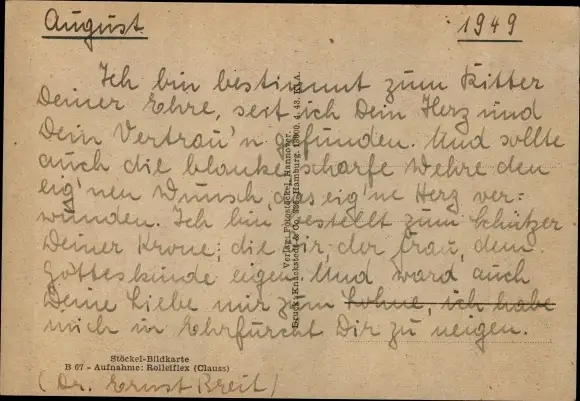 August 1949
Ich bin bestimmt zum Ritter
Deiner Ehre, seit ich Dein Herz und
Dein Vertrau'n gefunden. Und sollte
auch die blanke scharfe Wehre den
eig'nen Wunsch, das eig'ne Herz ver=
wunden. Ich bin bestellt zum Schützer
Deiner Krone; die Dir, der Frau, dem
Gotteskinde eigen. Und ward auch
Deine Liebe mir zum Lohne, ich habe
mich in Ehrfurcht Dir zu neigen.
Verlag: Fotostöckel, Hannover.
Druck: Knackstedt & Co. Hamburg. 4. 43. Kl. A.
Stöckel-Bildkarte
B 67 - Aufnahme: Rolleiflex (Clauss)
(Dr. Ernst Breit)